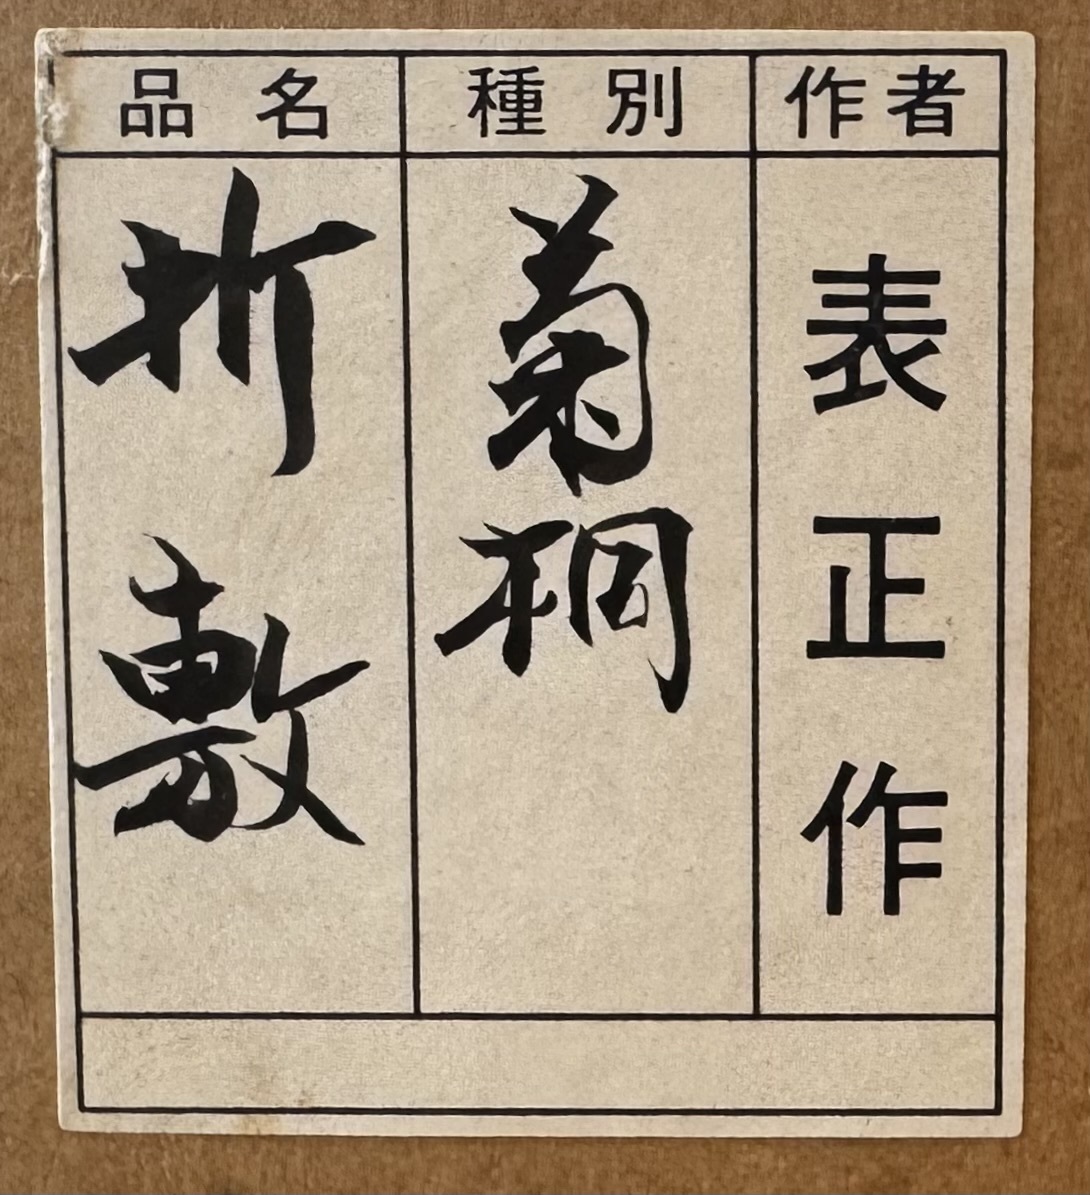 作者
表正作
種別
菊桐
品名
折敷